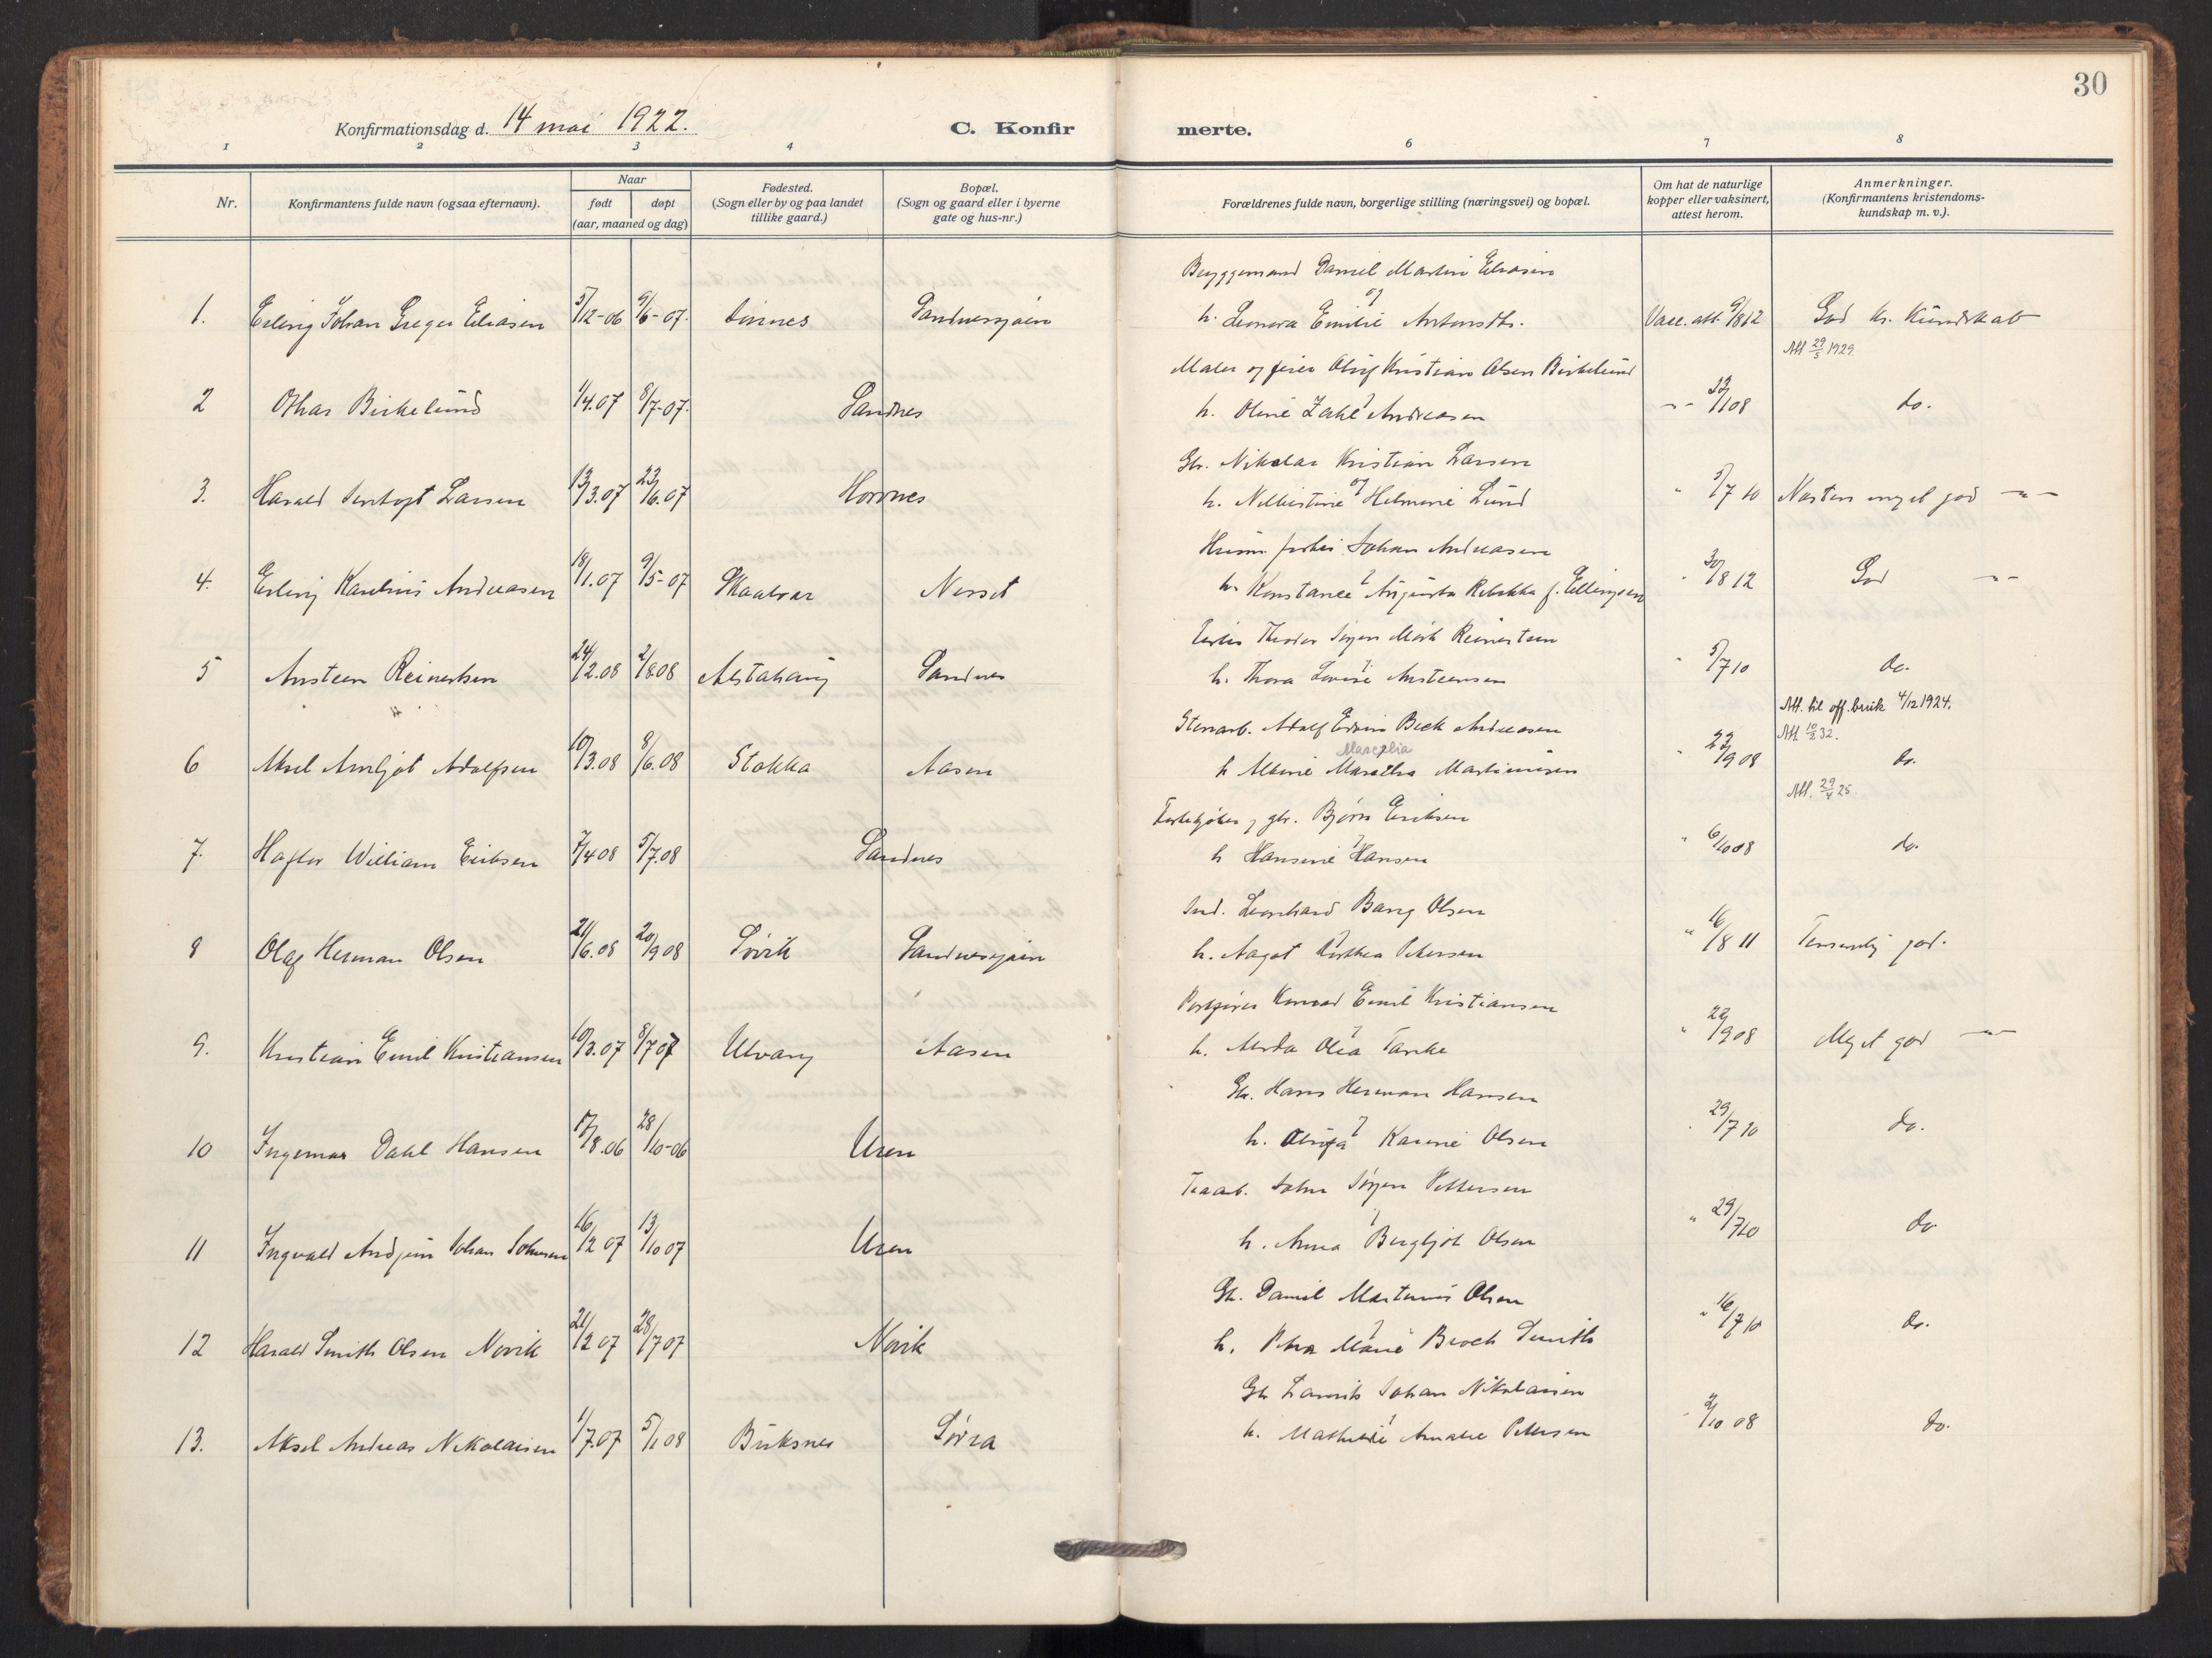 30
Konfirmationsdag d. 14 mai 1922.
C. Konfirmerte.
1 2 3 4 6 7 8
Nr.
Konfirmantens fulde navn (ogsaa efternavn).
Naar
født
døpt
(aar, maaned og dag)
Fødested.
(Sogn eller by og paa landet
tillike gaard.)
Bopæl.
(Sogn og gaard eller i byerne
gate og hus-nr.)
Forældrenes fulde navn, borgerlige stilling (næringsvei) og bopæl.
Om hat de naturlige
kopper eller vaksinert,
attest herom.
Anmerkninger.
(Konfirmantens kristendoms-
kundskap m. v.).
Bryggemand Daniel Martin Eliasen
og
1. Erling Johan Greger Eliasen 5/12-06 9/6-07. Sandnessjøen h. Leonora Emilie Antonsdtr. Vacc. att. 9/8 12 God kr. Kundskab
Att 29/5 1929.
Maler og feier Oluf Kristian Olsen Birkelund
2 Othar Birkelund 1/4.07 8/7-07. Sandnes h. Oline Zahl Andreasen /1 08 do.
Gbr. Nikolai Kristian Larsen
og
3. Harald Larsen 13/3.07 23/6.07 Horvnes h. Helmine Lund " 5/7 10 Næsten meget god -"-
Johan Andreasen
4. Erling Karelius Andreasen 18/1.07 9/5-07 Skaalvær Nesset h. Konstance Augusta Rebekka f. Ellingsen " 30/8 12 God -"-
Theodor Jørgen Mørk Reinertsen
5 Austeen Reinertsen 24/2.08 2/8.08 Alstahaug Sandnes h. Thora Lovise Austeensen " 5/7 10 do.
Att. til off. bruk 4/12 1924.
Att 10/2 32.
Stenarb. Adolf Edvin Beck Andreasen
6 Aksel Arnljot Adolfsen 10/3.08 8/6.08 Stokka Aasen h. Albine Martinusen " 22/9 08 do.
Att. 29/4 25.
gbr. Bjørn Eriksen
7. Haftor William Eriksen 7/4 08 5/7.08 Sandnes h. Hansine Hansen " 6/10 08 do.
Leonhard Bang Olsen
8 Olaf Herman Olsen 21/6.08 20/9 08 Søvik Sandnessjøen h. Aagot Dorthea Petersen " 16/8 11 Temmelig god.
Konrad Emil Kristiansen
9. Kristian Emil Kristiansen 10/3.07 8/7 07 Ulvang Aasen h. Olea " 22/9 08 Meget god -"-
Gbr. Hans Herman Hansen
10 Ingemar Dahl Hansen /8.06 28/10-06 Uren h. Olufa Karine Olsen " 29/7 10 do.
Johan Jørgen Pettersen
11 Ingvald Johan Johnsen 16/2 07 13/10 07 Uren h. Anna Bergljot Olsen " 29/7 10 do
Gbr. Daniel Martinus Olsen
12 Harald Smith Olsen Novik 21/2 07 28/7 07 Novik h. Petra Marie Broch Smith " 16/7 10 do.
Gbr Laurits Johan Nikolaisen
13. Aksel Andreas Nikolaisen 1/7.07 5/1 08 Buksnes Søvra h. Mathilde Amalie Petersen /10 08 do.